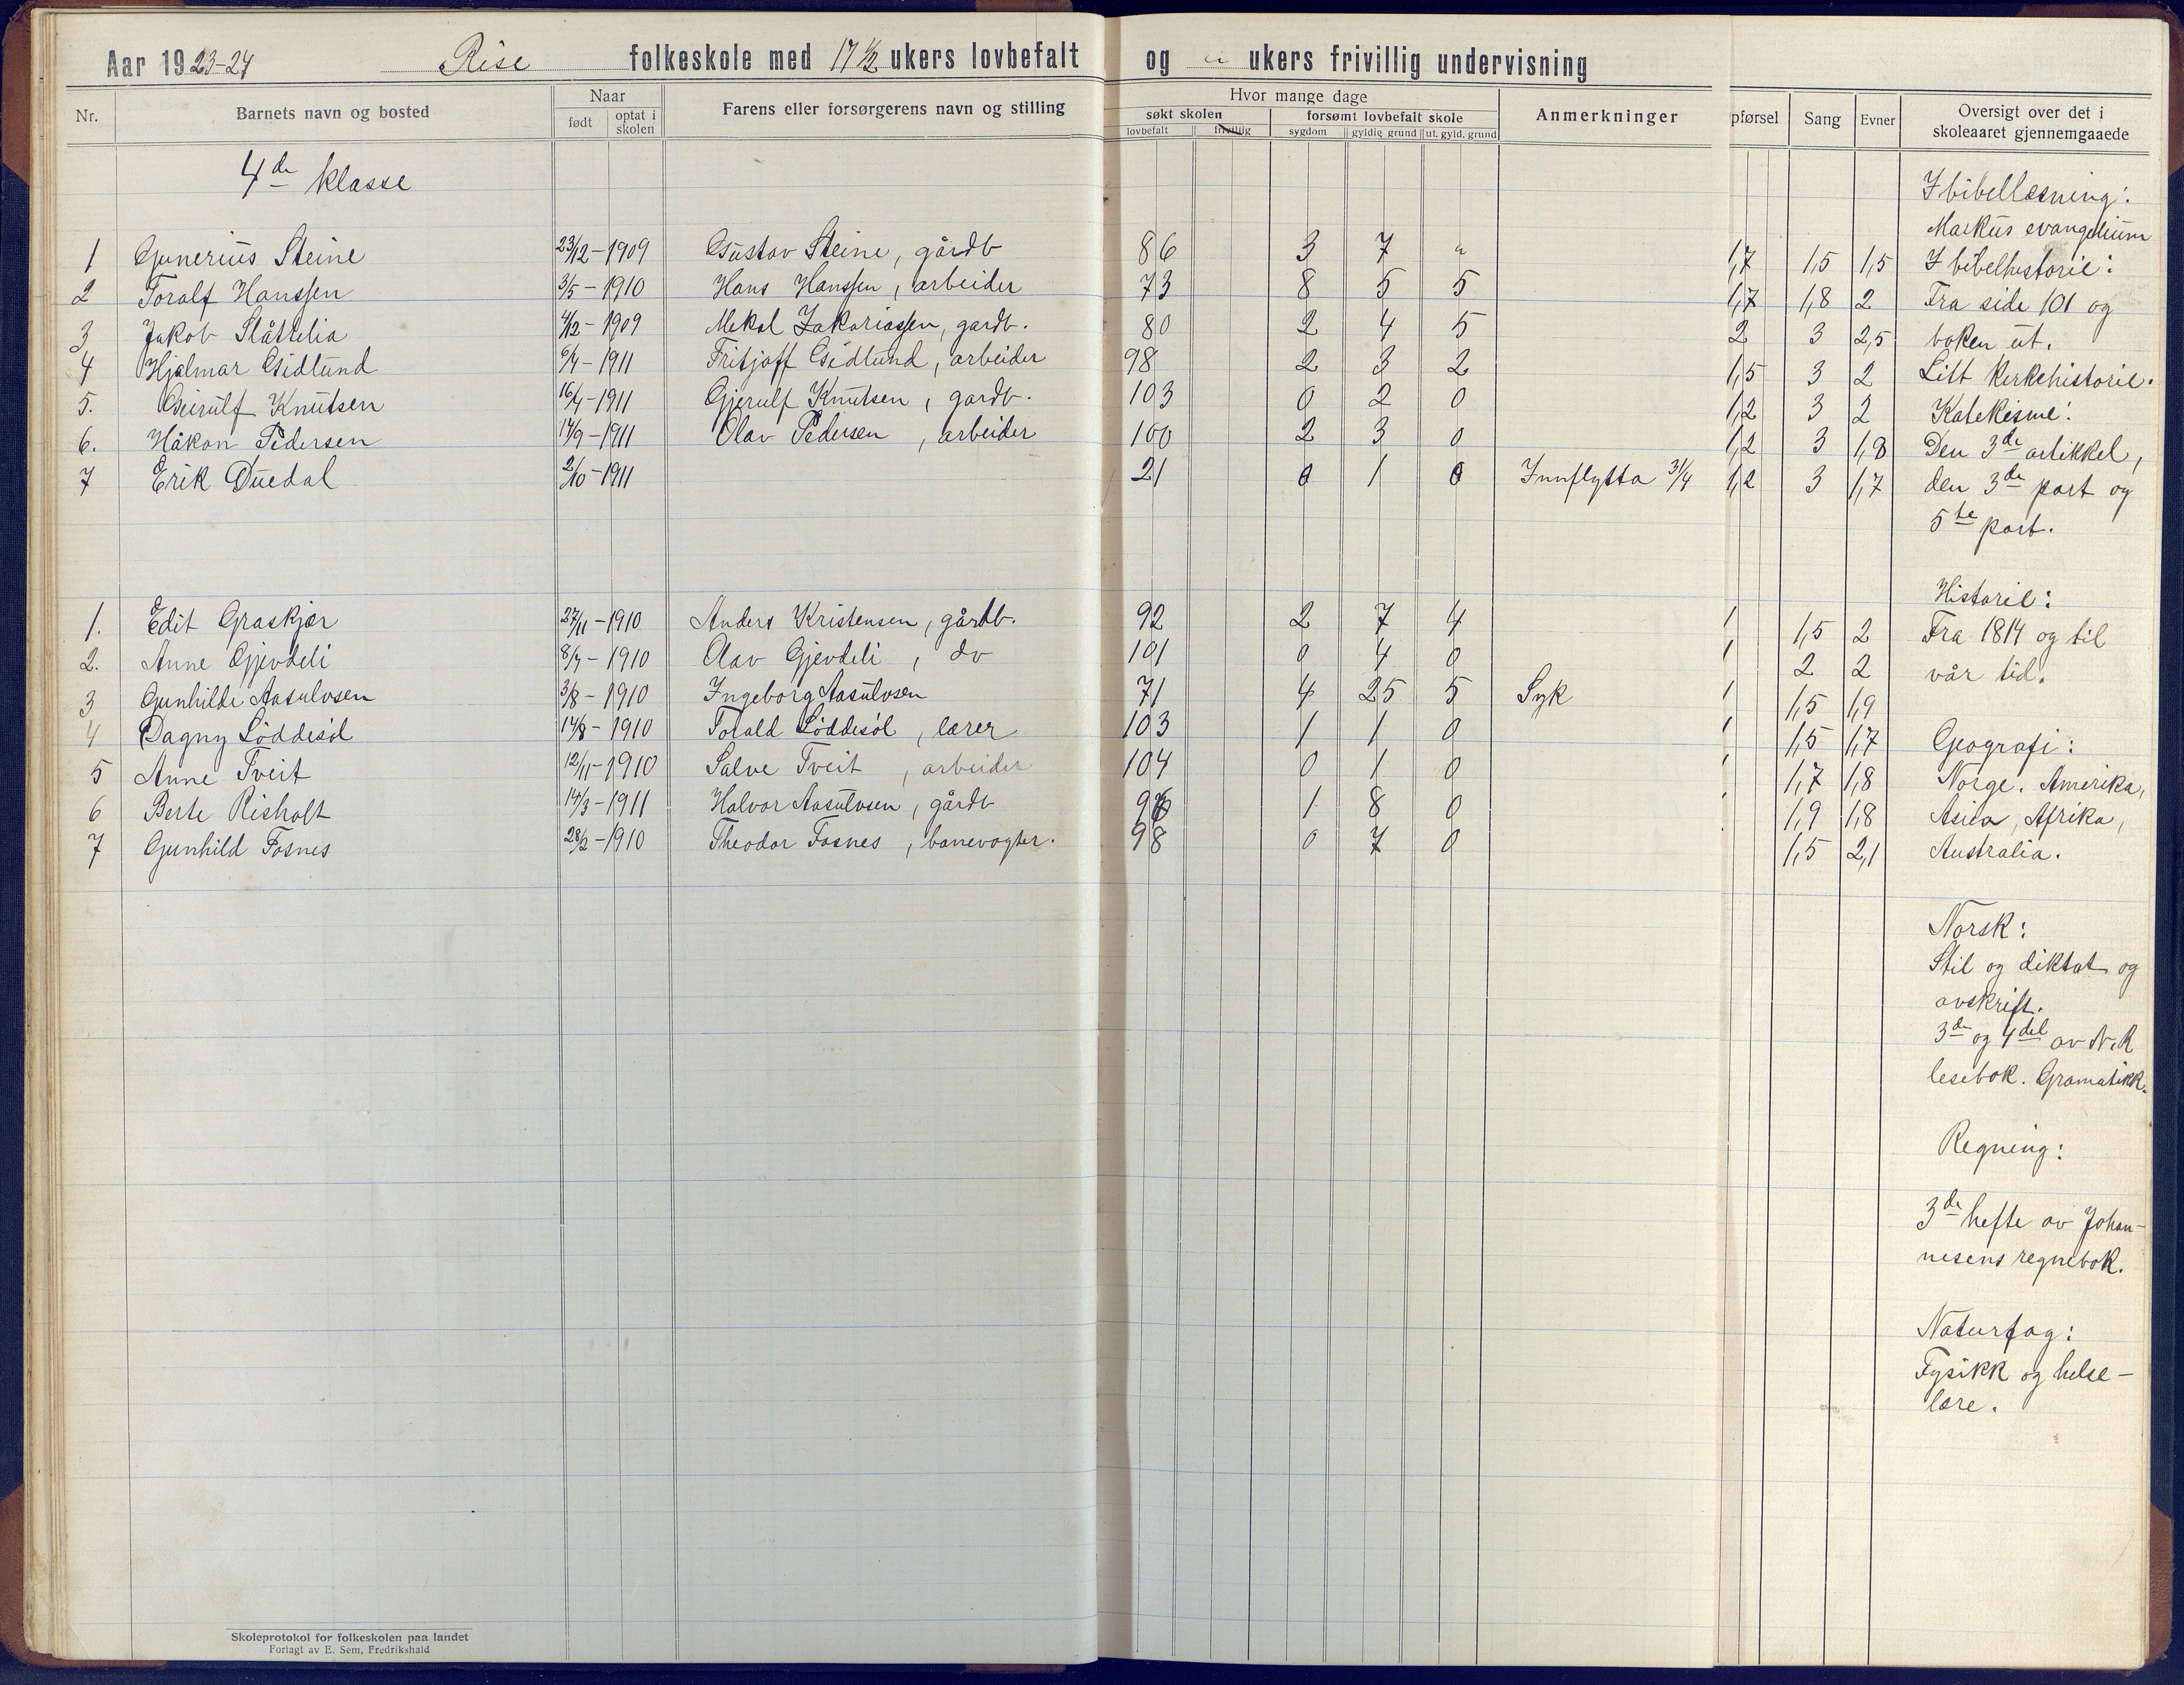 Aar 1923-24 Rise folkeskole med 17 1/2 ukers lovbefalt og " ukers frivillig undervisning
Nr. Barnets navn og bosted Naar født optat i skolen Farens eller forsørgerens navn og stilling Hvor mange dage søkt skolen lovbefalt frivillig forsømt lovbefalt skole sygdom gyldig grund ut. gyld. grund Anmerkninger pførsel Sang Evner Oversigt over det i skoleaaret gjennemgaaede
4de klasse
I bibellæsning:
Markus evangelium
1 Gunerius Steine 23/12-1909 Gustav Steine, gårdb 86 3 7 " 1,7 1,5 1,5 I bibelhistorie:
2 Toralf Hanssen 3/5-1910 Hans Hanssen, arbeider 73 8 5 5 1,7 1,8 2 Fra side 101 og
3 Jakob Slåttelia 4/12-1909 Mekal Zakariassen, gardb. 80 2 4 5 2 3 2,5 boken ut.
4 Hjalmar Gidlund 6/4-1911 Fritjoff Gidlund, arbeider 98 2 3 2 1,5 3 2 Litt kirkehistorie.
5. Geirulf Knutsen 16/4-1911 Gjerulf Knutsen, gardb. 103 0 2 0 1,2 3 2 Katekisme:
6. Håkon Pedersen 14/9-1911 Olav Pedersen, arbeider 100 2 3 0 1,2 3 1,8 Den 3de artikkel,
7 Erik Duedal 2/10-1911 21 0 1 0 Innflytta 31/4 1,2 3 1,7 den 3de part og
5te part.
Historie:
1. Edit Graskjær 27/11-1910 Anders Kristensen, gårdb. 92 2 7 4 1 1,5 2 Fra 1814 og til
2. Anne Gjevdeli 8/7-1910 Olav Gjevdeli, do 101 0 4 0 1 2 2 vår tid.
3 Gunhilde Aasulvsen 3/8-1910 Ingeborg Aasulvsen 71 4 25 5 Syk 1 1,5 1,9
4 Dagny Løddesøl 14/8-1910 Torald Løddesøl, lærer 103 1 1 0 1 1,5 1,7 Geografi:
5 Anne Tveit 12/11-1910 Salve Tveit, arbeider 104 0 1 0 1 1,7 1,8 Norge. Amerika,
6 Berte Risholt 14/3-1911 Halvor Aasulvsen, gårdb 96 1 8 0 1 1,9 1,8 Asia, Afrika,
7 Gunhild Fosnes 28/2-1910 Theodor Fosnes, banevogter. 98 0 7 0 1,5 2,1 Australia.
Norsk:
Stil og diktat og
avskrift.
3de og 4 del av N.R
lesebok. Gramatikk.
Regning:
3de hefte av Johan-
nesens regnebok.
Naturfag:
Fysikk og helse-
lære.
Skoleprotokol for folkeskolen paa landet
Forlagt av E. Sem, Fredrikshald